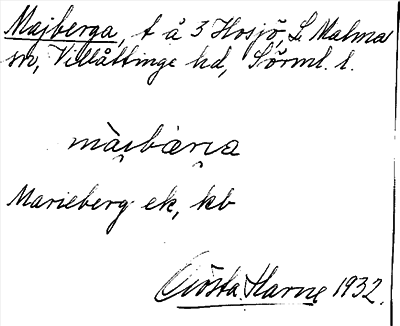 Majberga, t å 3 Hosjö, L. Malma
sn, Villåttinge hd, Sörml. l.
màɪ̯bàrɪ̯a
Marieberg ek, kb
Gösta Harne 1932.